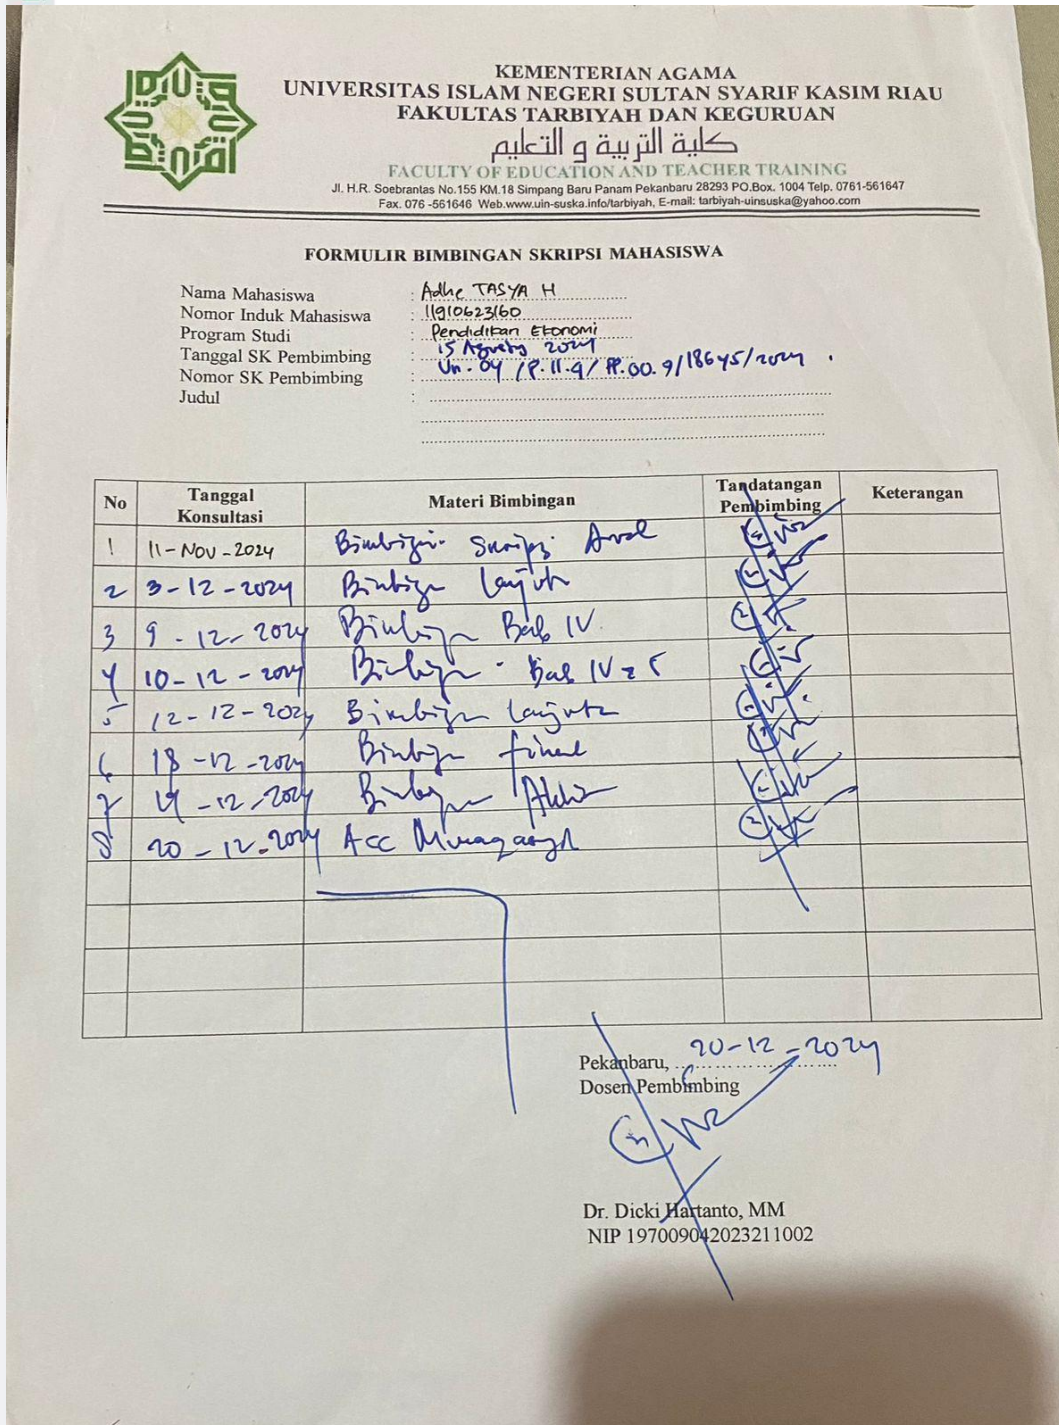 KEMENTERIAN AGAMA
UNIVERSITAS ISLAM NEGERI SULTAN SYARIF KASIM RIAU
FAKULTAS TARBIYAH DAN KEGURUAN
كلية التربية و التعليم
FACULTY OF EDUCATION AND TEACHER TRAINING
Jl. H.R. Soebrantas No.155 KM.18 Simpang Baru Panam Pekanbaru 28293 PO.Box. 1004 Telp. 0761-561647
Fax. 076 -561646 Web.www.uin-suska.info/tarbiyah, E-mail: tarbiyah-uinsuska@yahoo.com
FORMULIR BIMBINGAN SKRIPSI MAHASISWA
Nama Mahasiswa : Adhe TASYA H
Nomor Induk Mahasiswa : 11910623160
Program Studi : Pendidikan Ekonomi
Tanggal SK Pembimbing : 15 Agustus 2024
Nomor SK Pembimbing : Un.04/F.II.4/PP.00.9/18645/2024
Judul :
No Tanggal Konsultasi Materi Bimbingan Tandatangan Pembimbing Keterangan
1 11-Nov-2024 Bimbingan Skripsi Awal
2 3-12-2024 Bimbingan Lanjutan
3 9-12-2024 Bimbingan Bab IV
4 10-12-2024 Bimbingan Bab IV
5 12-12-2024 Bimbingan Lanjutan
6 18-12-2024 Bimbingan final
7 19-12-2024 Bimbingan Akhir
8 20-12-2024 Acc
Pekanbaru, 20-12-2024
Dosen Pembimbing
Dr. Dicki Hartanto, MM
NIP 197009042023211002